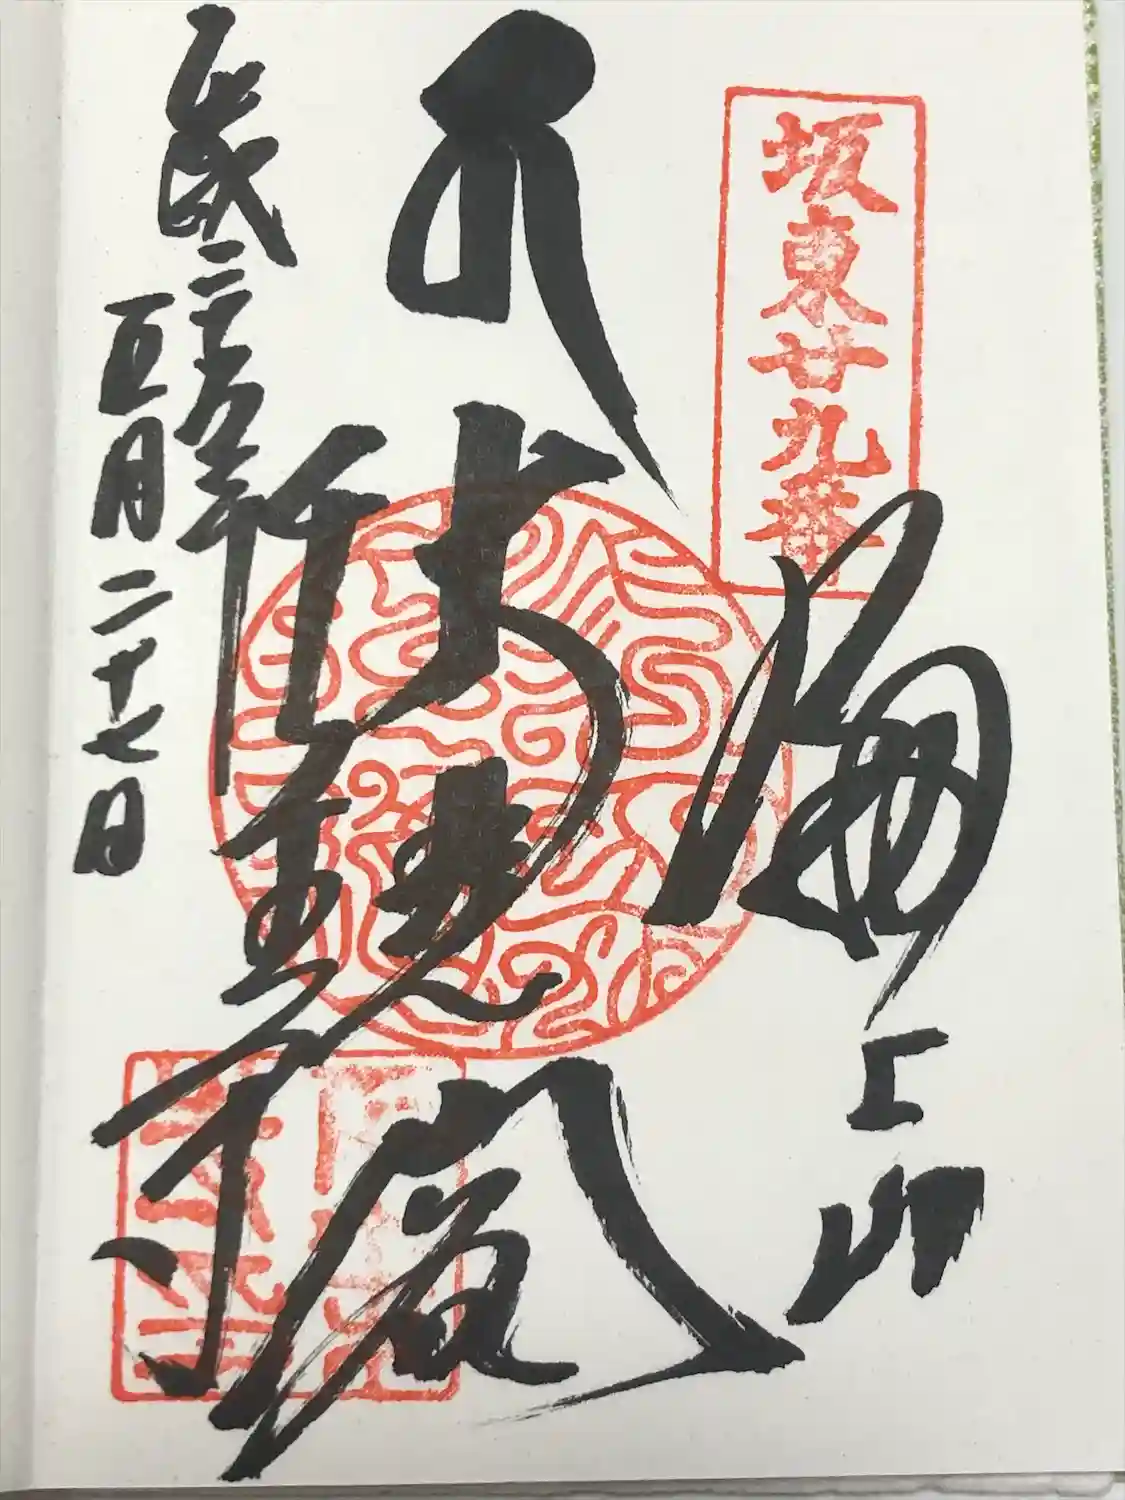 坂東廿九番
海上山
大悲殿
千葉寺
平成二十九年
五月二十七日